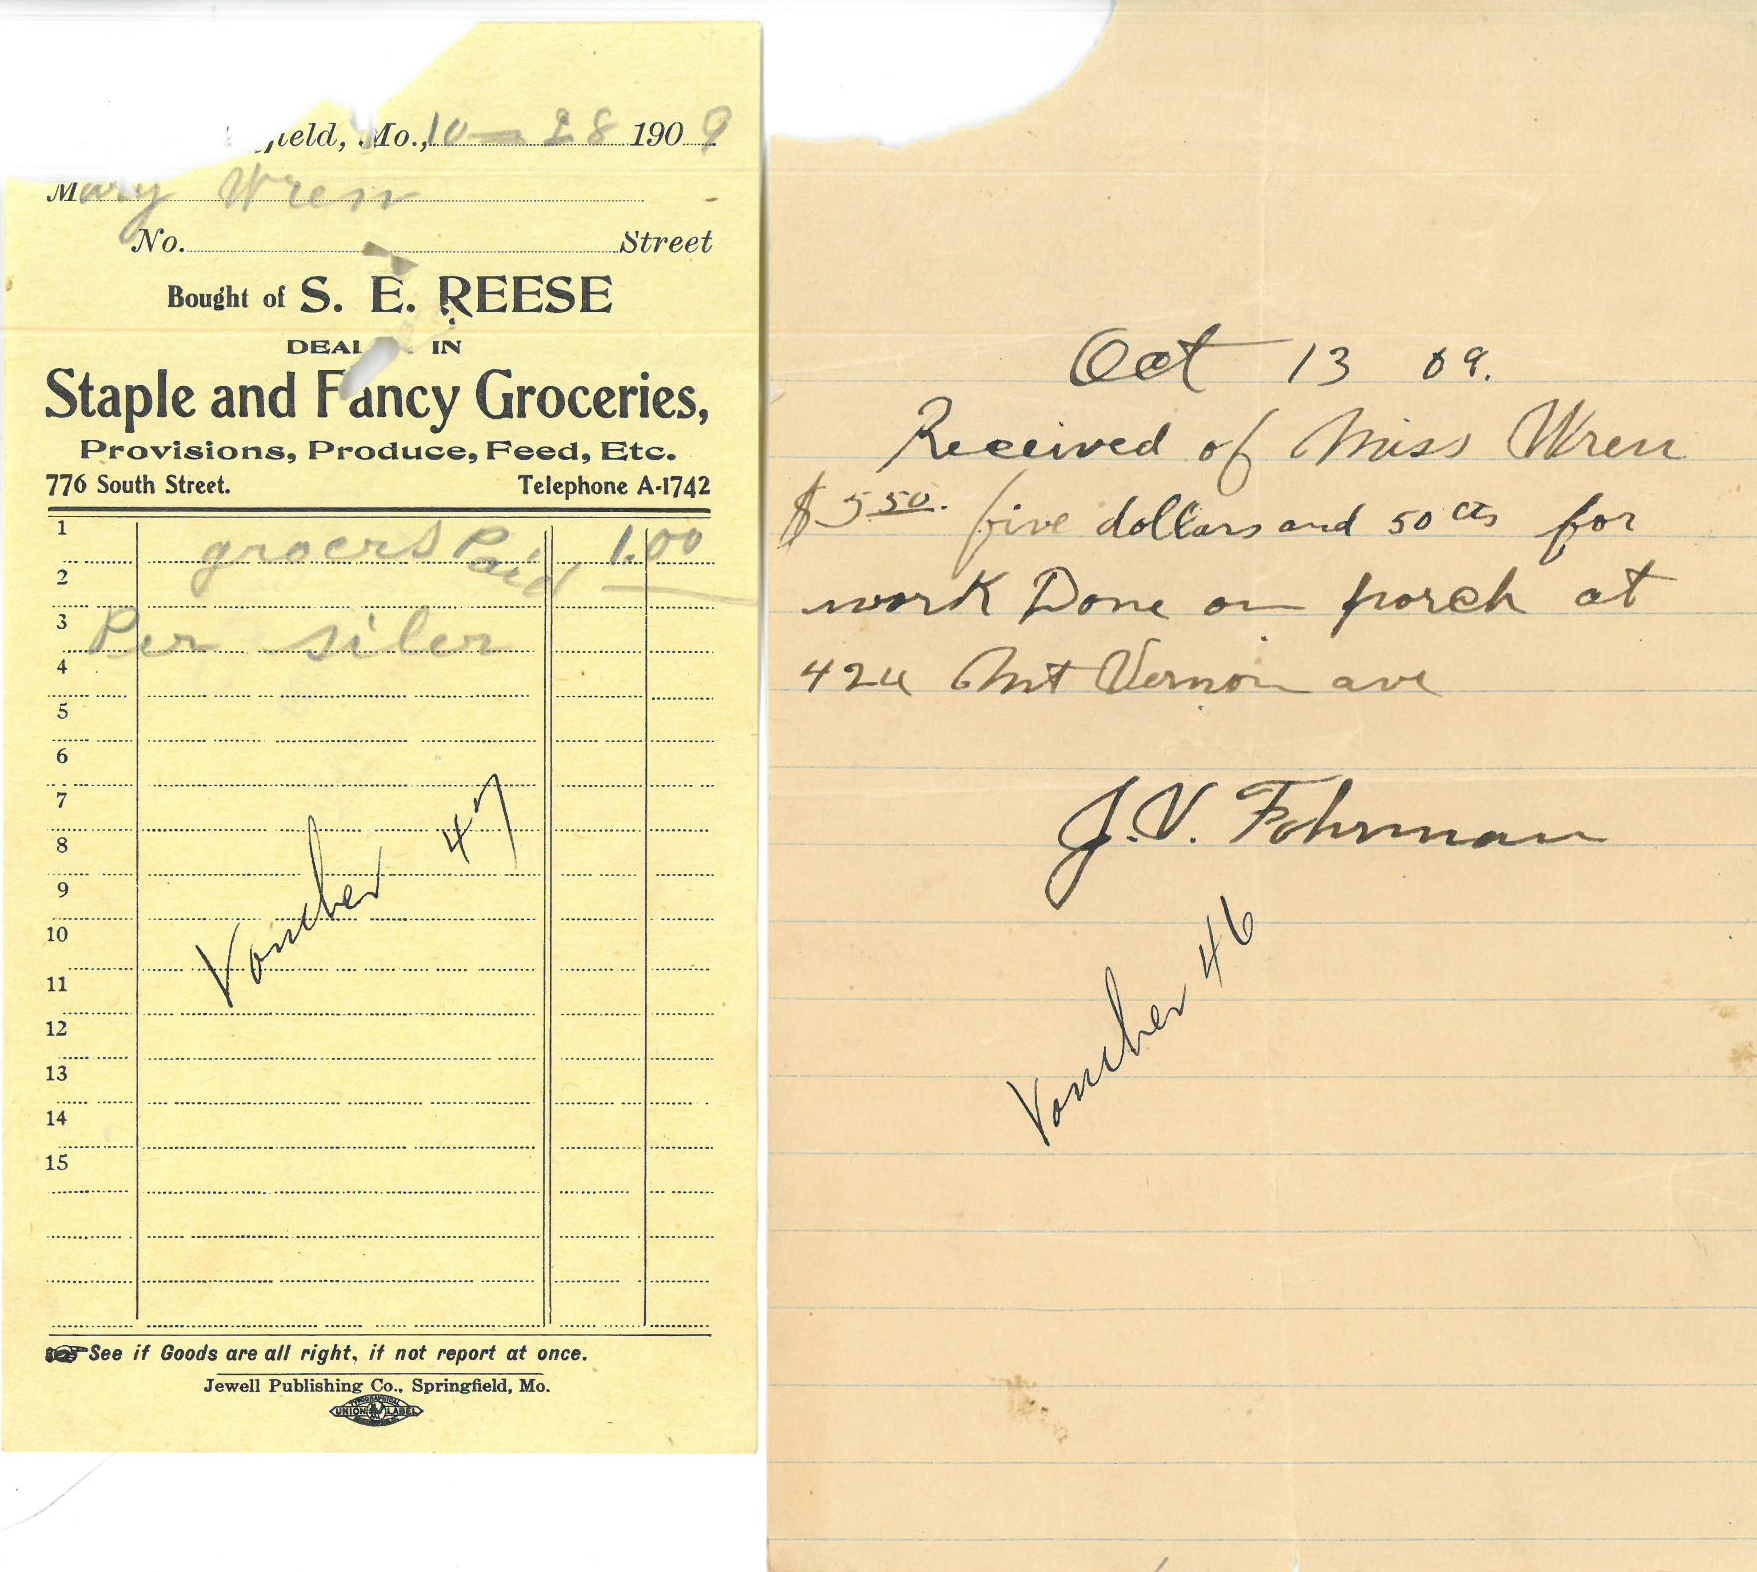 field, Mo., 10 - 28 1909
Mary Wren
No. Street
Bought of S. E. REESE
DEAL IN
Staple and Fancy Groceries,
Provisions, Produce, Feed, Etc.
776 South Street. Telephone A-1742
1 grocers Paid 1.00
2
3 Per siler
4
5
6
7
8
9
10
11
12
13
14
15
Voucher 47
See if Goods are all right, if not report at once.
Jewell Publishing Co., Springfield, Mo.
UNION LABEL
Oct 13 09.
Received of Miss Wren
$5.50. five dollars and 50 cts for
work Done on porch at
424 Mt Vernon ave
J. V. Fohrman
Voucher 46